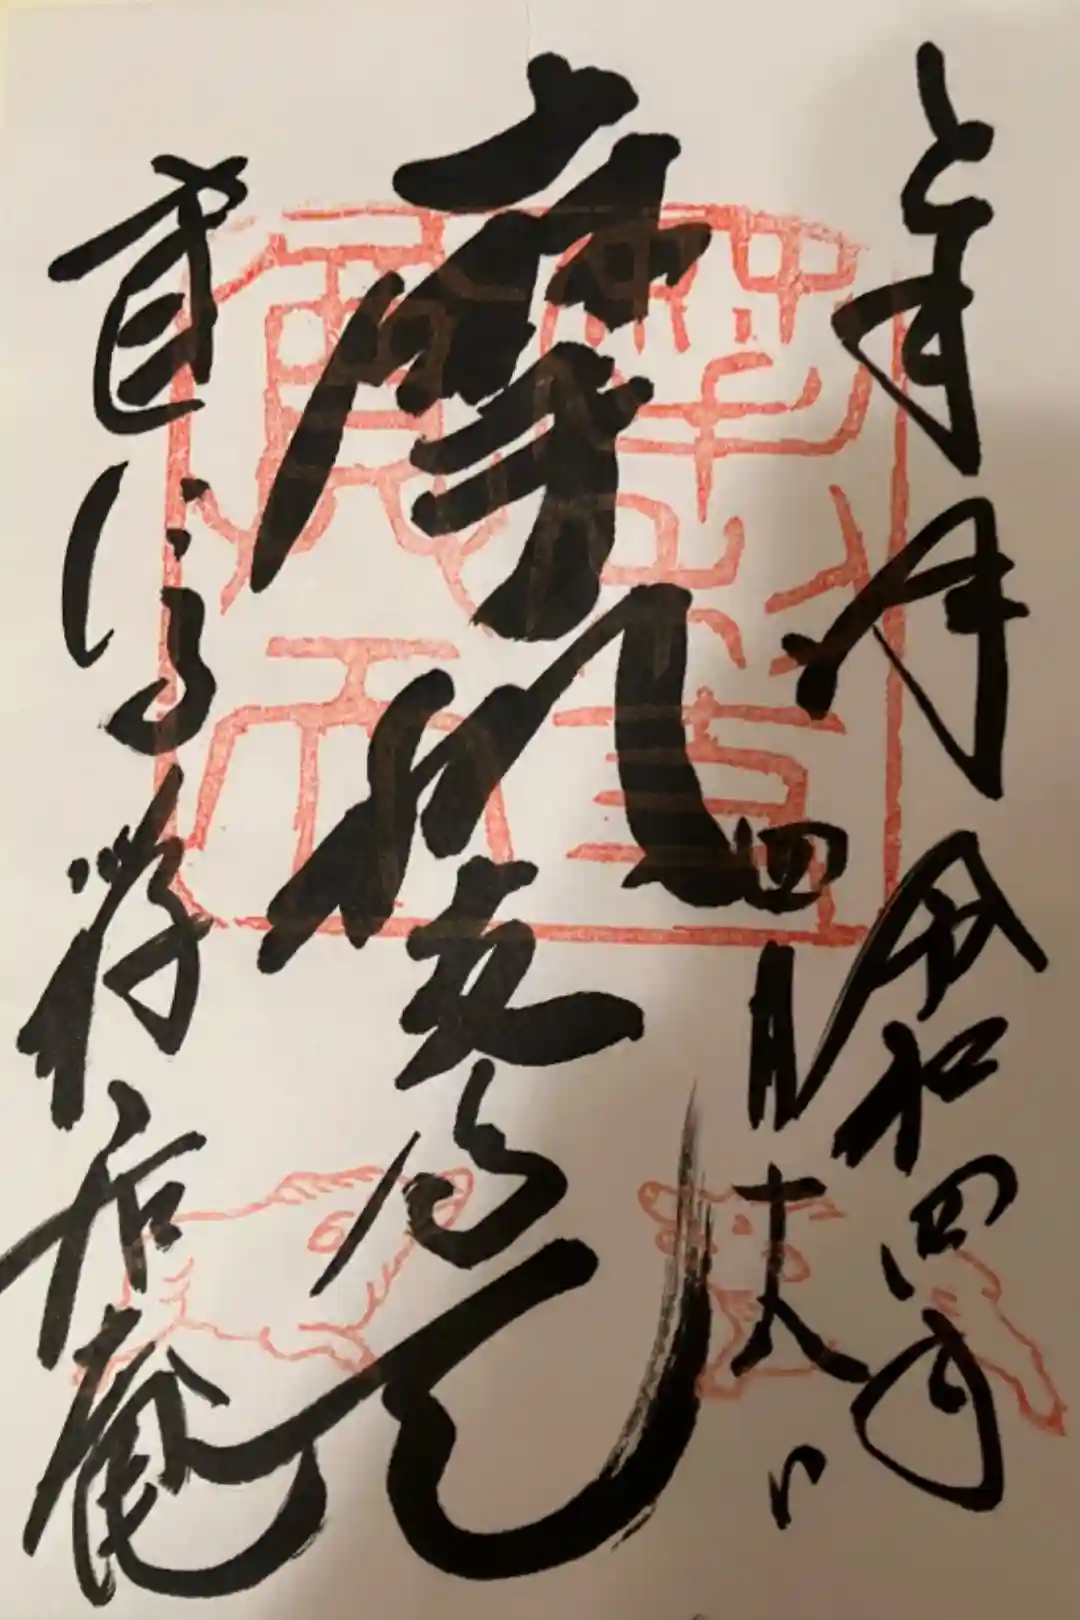 奉拝 令和四年
四月十八日
摩利支尊天
建仁寺禅居庵